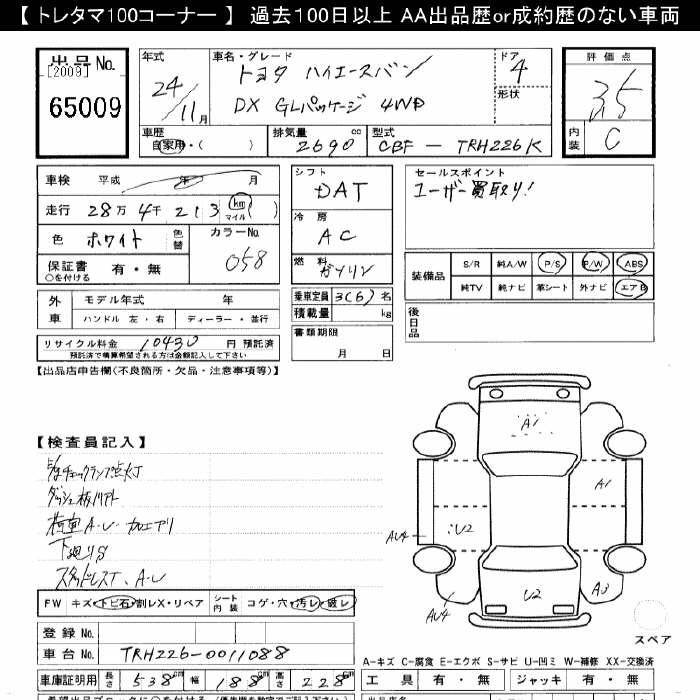 【 トレタマ100コーナー 】 過去100日以上 AA出品歴or成約歴のない車両
出品No.
[2009]
65009
年式
24/11月
車名・グレード
トヨタ ハイエースバン
DX GLパッケージ 4WD
ドア
4
形状
評価点
3.5
内装
C
車歴
自家用・( )
排気量
2690cc
型式
CBF - TRH226K
車検 平成 年 月
走行 28万 4千 213 km マイル ( )
色 ホワイト 色替
カラーNo.
058
保証書 有・無
○を付ける
シフト
DAT
冷房
AC
燃料
ガソリン
乗車定員 3(6)名
積載量 kg
書類期限
月 日
セールスポイント
ユーザー買取り!
装備品
S/R 純A/W P/S P/W ABS
純TV 純ナビ 革シート 外ナビ エアB
後日品
外車
モデル年式 年
ハンドル 左・右 ディーラー・並行
リサイクル料金 10430円 預託済
預託済で精算希望される方は金額記入して下さい
【出品店申告欄(不良箇所・欠品・注意事項等)】
【検査員記入】
チェックランプ点灯
下廻りS
スタッドレスT、A-U
A1
A1
U2
AU4
AU4
U2
A3
スペア
FW キズ・トビ石・割レX・リペア
シート内装 コゲ・穴・汚レ・破レ
登録No.
車台No. TRH226-0011088
車庫証明用 長さ 538cm 幅 188cm 高さ 228cm
A-キズ C-腐食 E-エクボ S-サビ U-凹ミ W-補修 XX-交換済
工具 有・無 ジャッキ 有・無